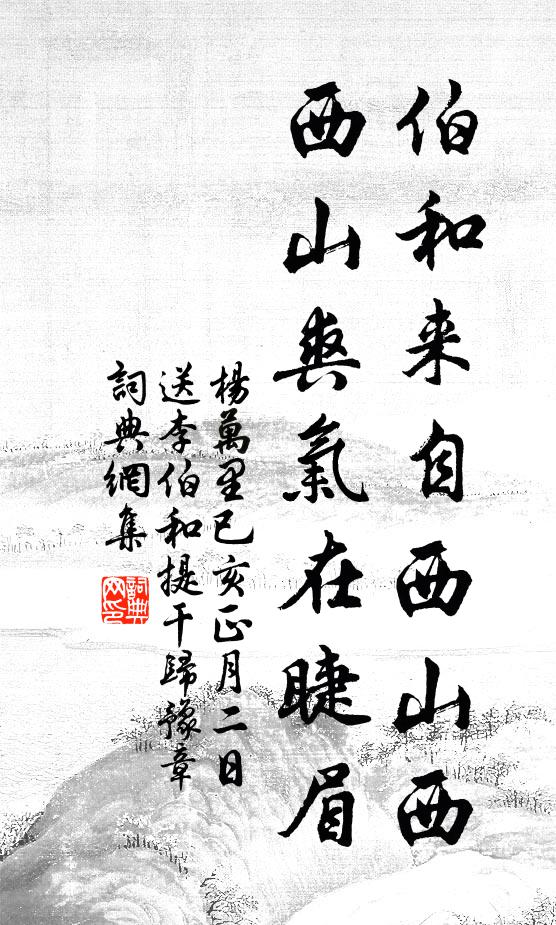 伯和来自西山西
西山爽氣在睫眉
楊萬里已亥正月二日
送李伯和提干歸豫章
詞典網集
詞典網印